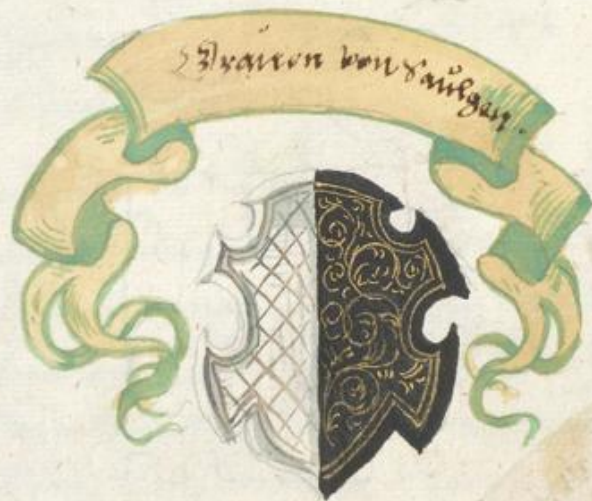 Grauen von Saulgen.